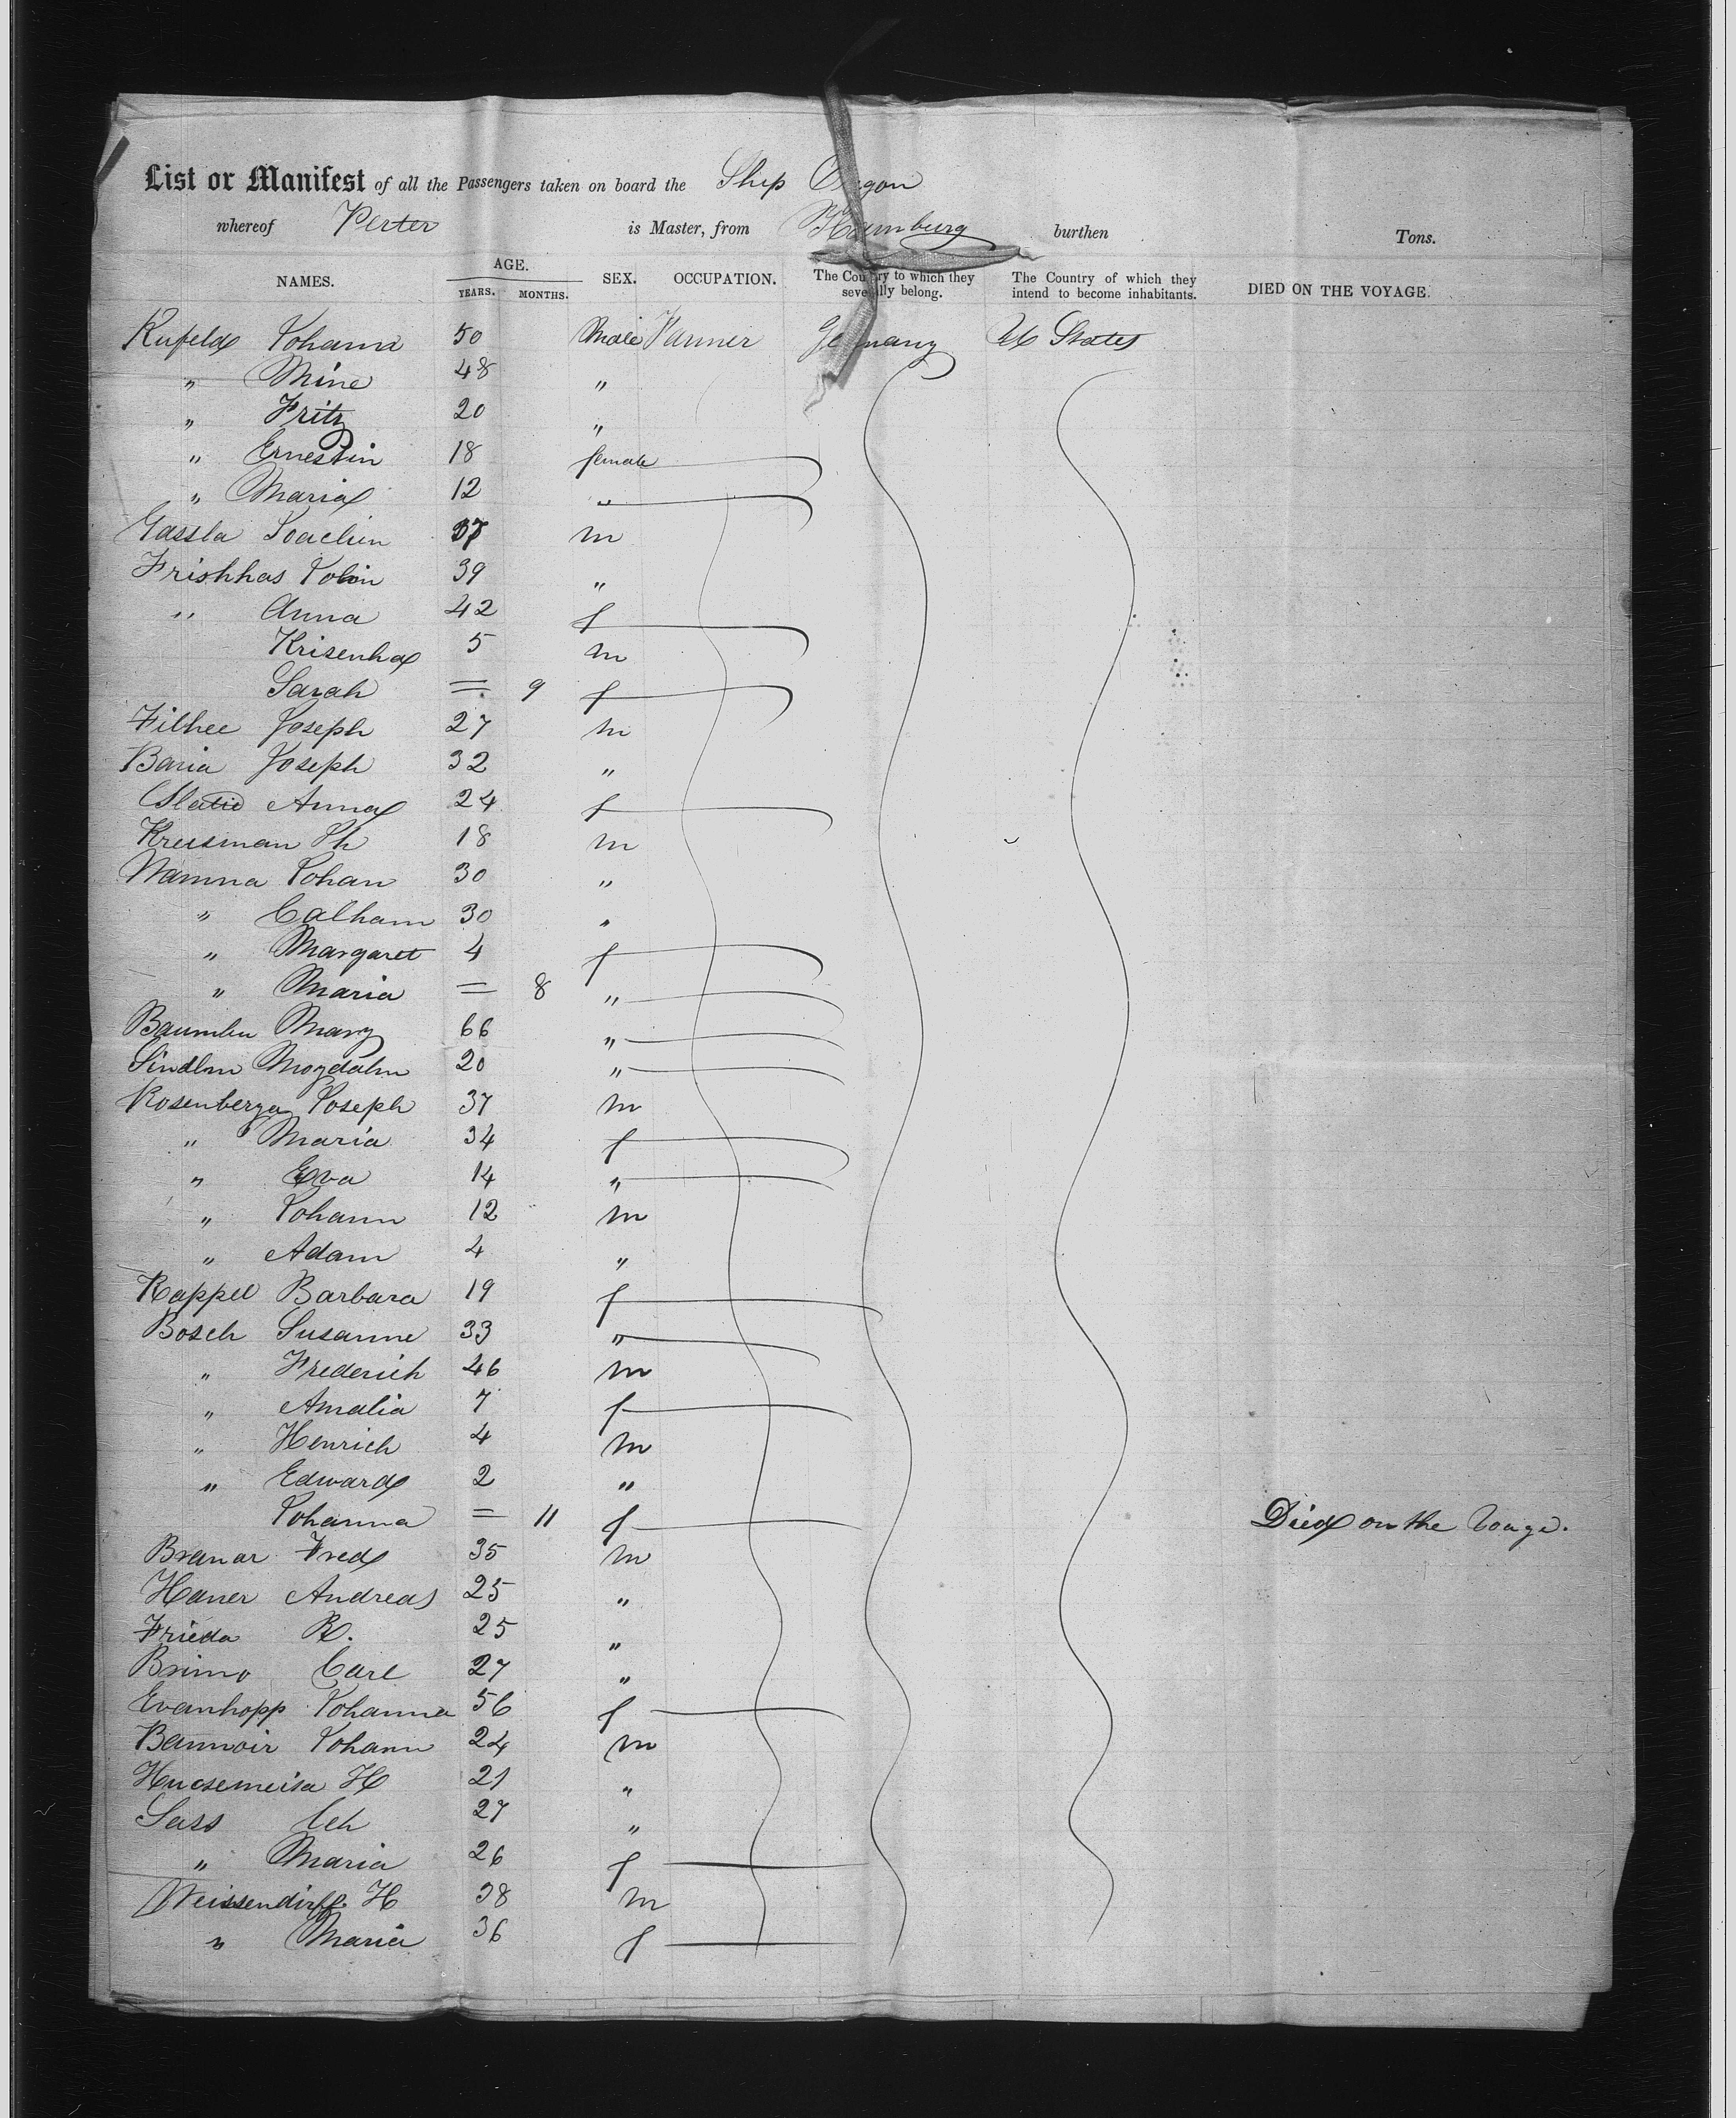 List or Manifest of all the Passengers taken on board the Ship Oregon
whereof Perter is Master, from Hamburg burthen Tons.
NAMES. AGE. YEARS. MONTHS. SEX. OCCUPATION. The Country to which they severally belong. The Country of which they intend to become inhabitants. DIED ON THE VOYAGE.
Rufeld Johann 50 Male Farmer Germany U States
" Mine 48 "
" Fritz 20 "
" Ernestin 18 female
" Maria 12 "
Gassla Joachim 37 m
Frishhas John 39 "
" Anna 42 f
Krisenha 5 m
Sarah = 9 f
Filhee Joseph 27 m
Baria Joseph 32 "
Anna 24 f
Kreusman Ph 18 m
Namna Johan 30 "
" Calham 30 "
" Margaret 4 f
" Maria = 8 "
Baumbu Mary 66 "
Sindlm Mogdalm 20 "
Rosenberga Joseph 37 m
" Maria 34 f
" Eva 14 "
" Johann 12 m
" Adam 4 "
Kappel Barbara 19 f
Bosch Susanne 33 "
" Frederich 46 m
" Amalia 7 f
" Henrich 4 m
" Edward 2 "
Johanna = 11 f Died on the Voage.
Branar Fred 35 m
Haner Andreas 25 "
Frieda R. 25 "
Brimo Carl 27 "
Evanhopp Johanna 56 f
Bannoir Johann 24 m
Hucsemeisa H 21 "
Sass Ch 27 "
" Maria 26 f
Weissendirff H 38 m
" Maria 36 f